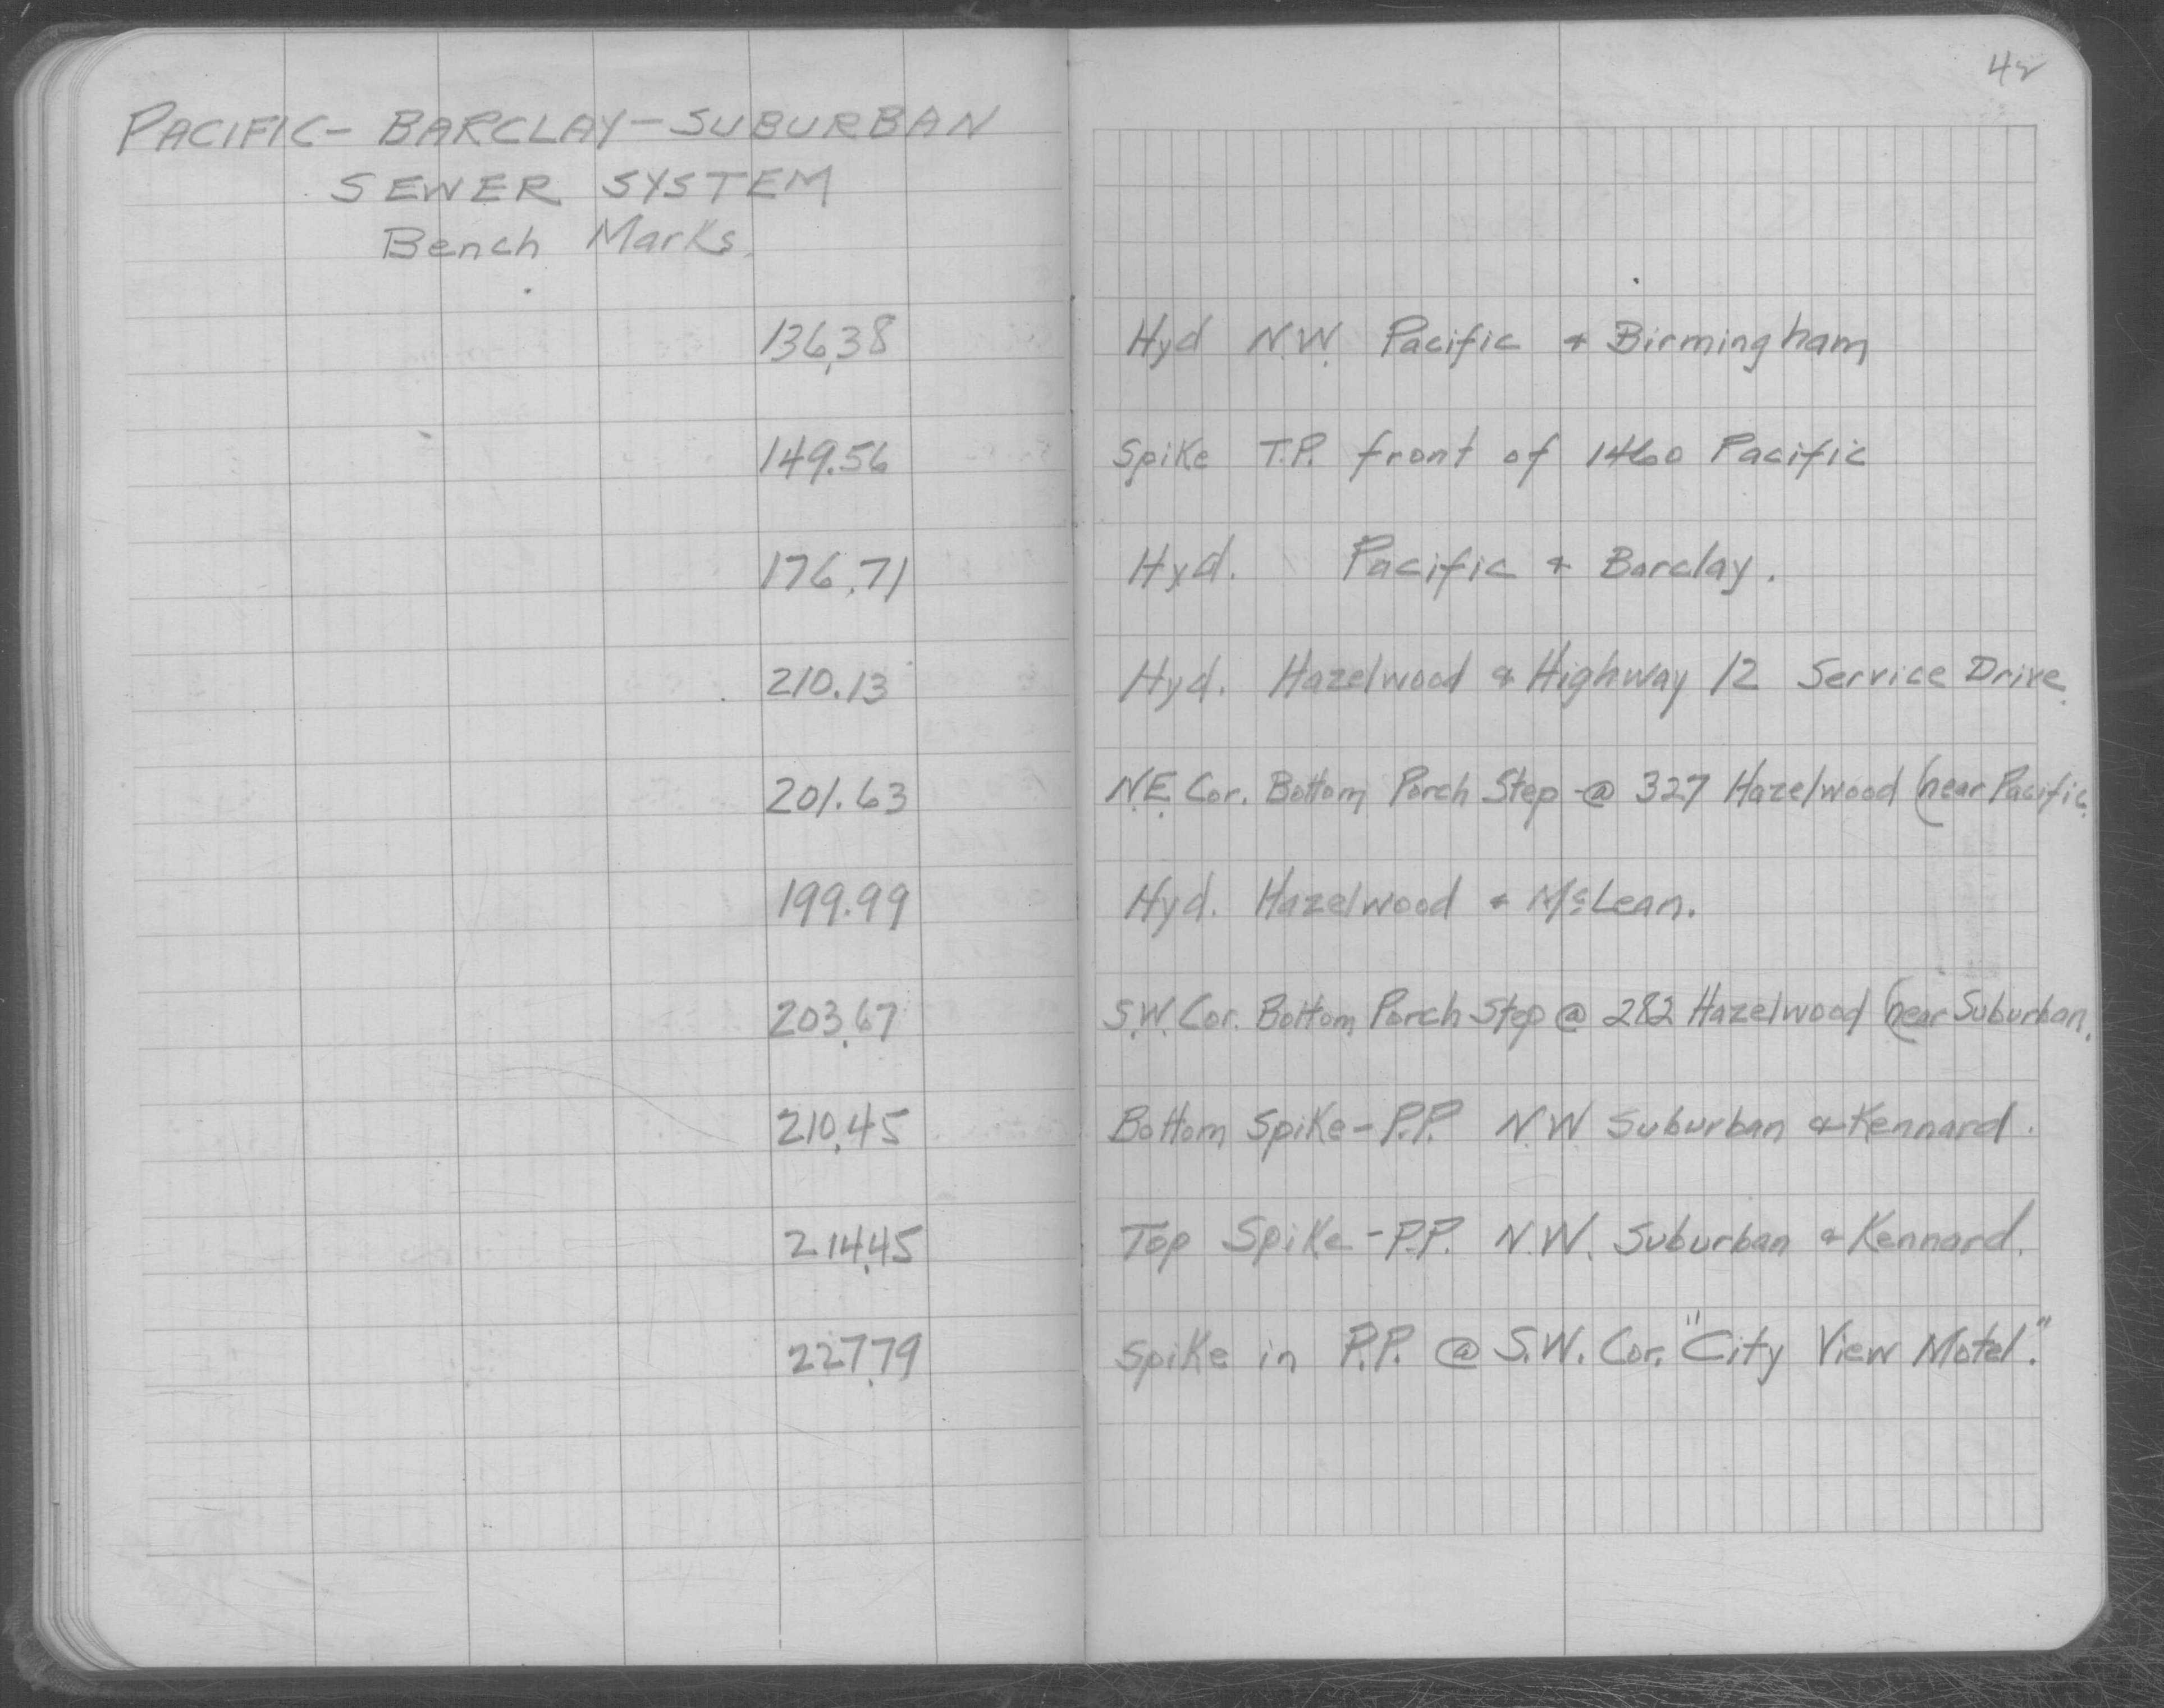 42
PACIFIC- BARCLAY-SUBURBAN
SEWER SYSTEM
Bench Marks.
136.38 Hyd N.W. Pacific & Birmingham
149.56 Spike T.P. front of 1460 Pacific
176.71 Hyd. Pacific & Barclay.
210.13 Hyd. Hazelwood & Highway 12 Service Drive.
201.63 N.E. Cor. Bottom Porch Step @ 327 Hazelwood (near Pacific.
199.99 Hyd. Hazelwood & McLean.
203.67 S.W. Cor. Bottom Porch Step @ 282 Hazelwood (near Suburban.
210.45 Bottom Spike-P.P. N.W. Suburban & Kennard.
214.45 Top Spike-P.P. N.W. Suburban & Kennard.
227.79 Spike in P.P. @ S.W. Cor. "City View Motel."